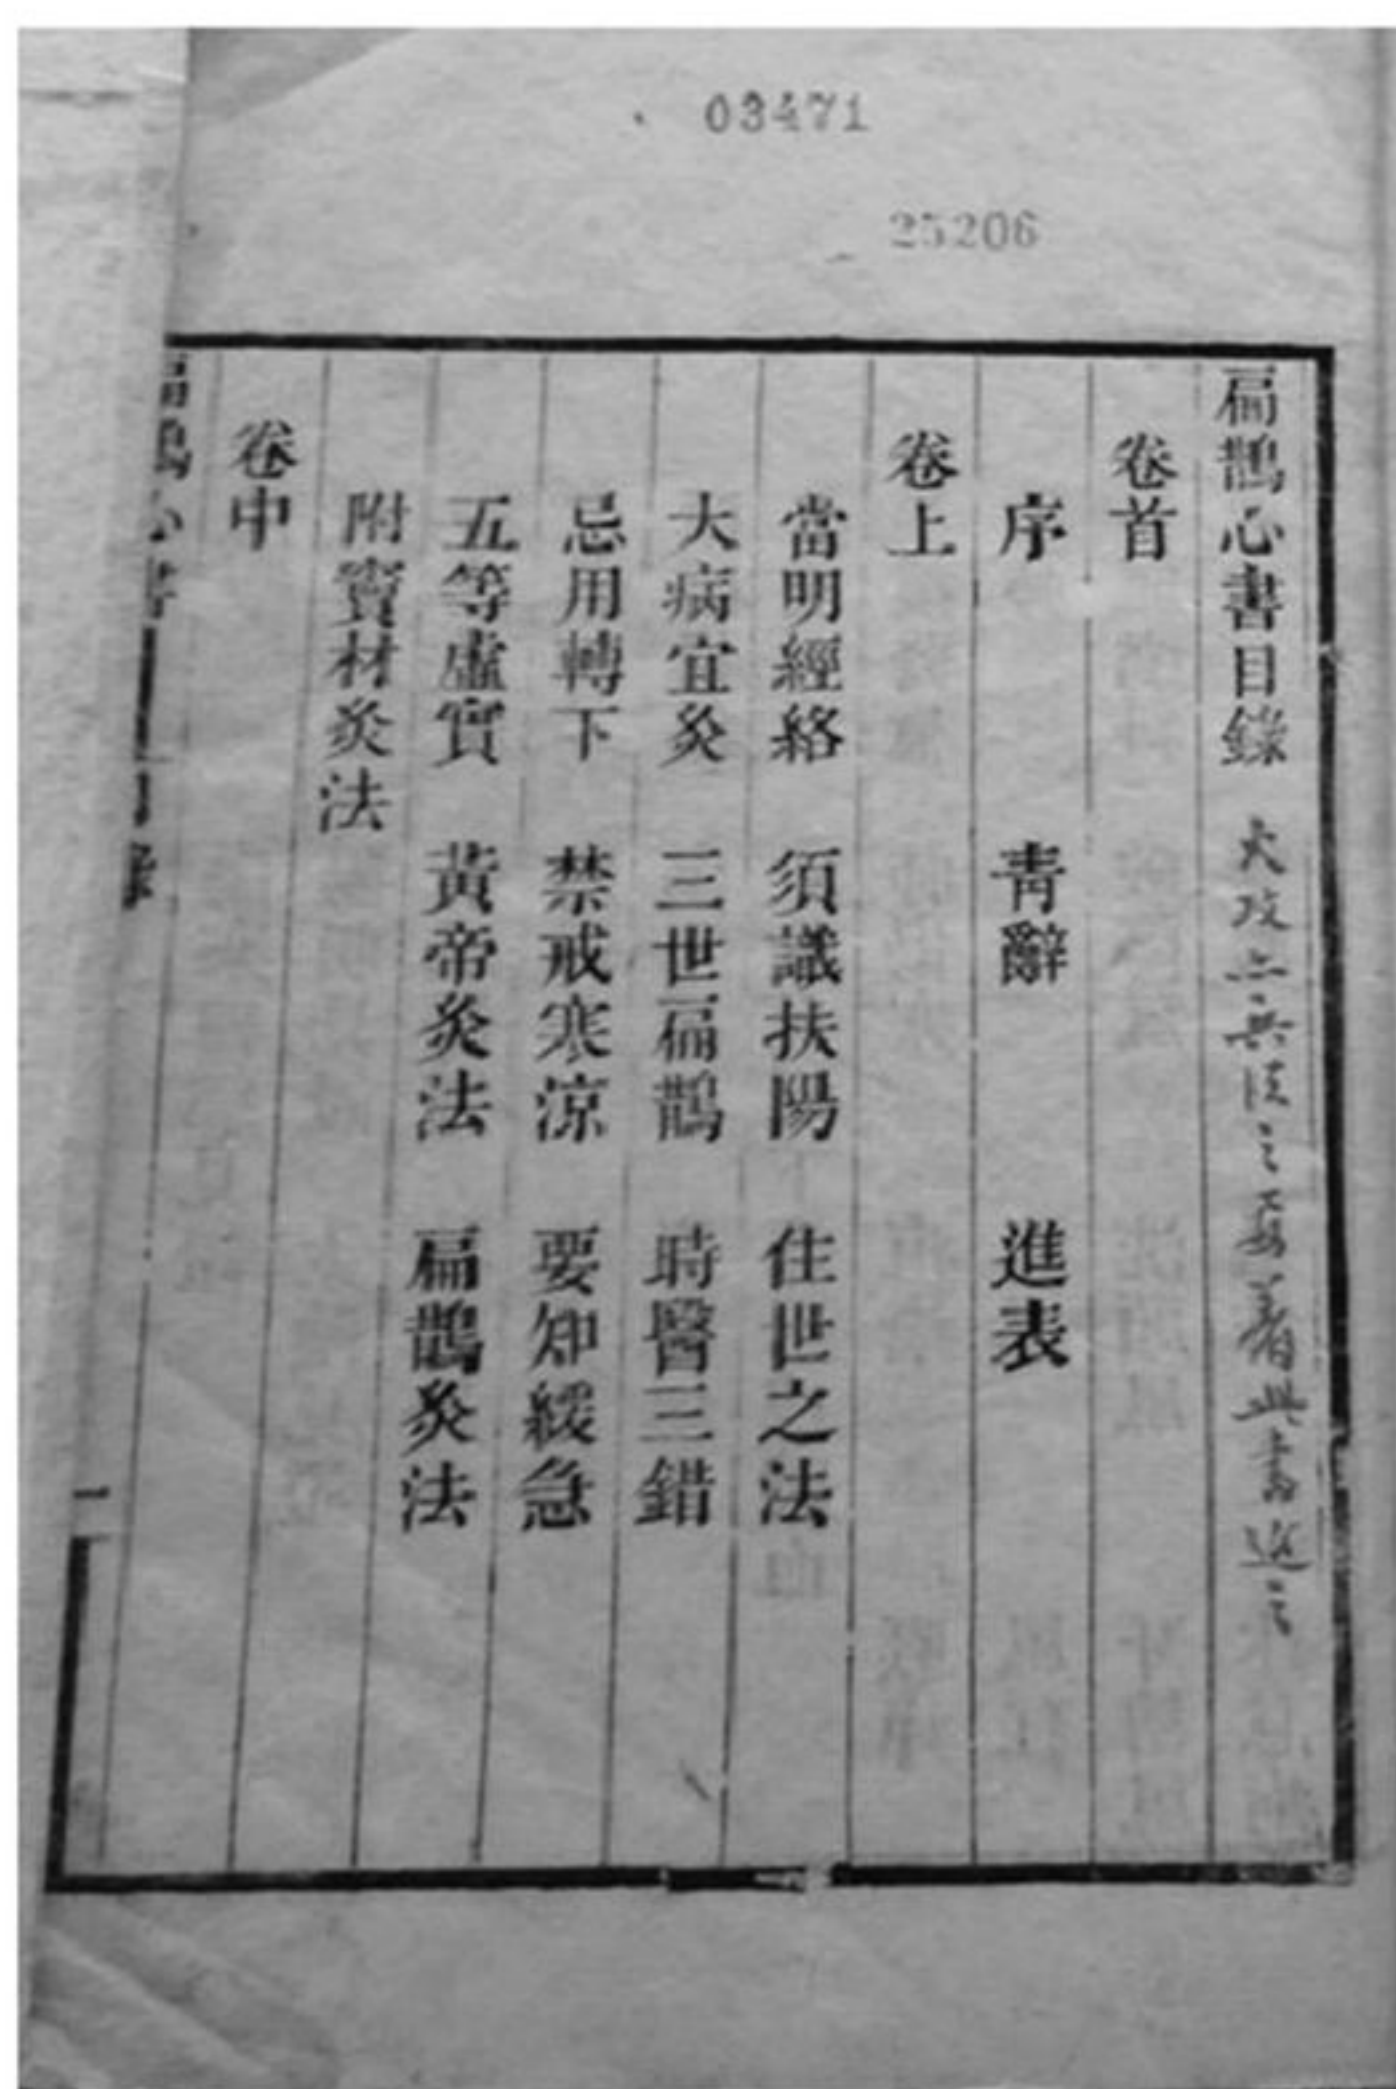 03471
25206
扁鵲心書目錄
卷首
序 青辭 進表
卷上
當明經絡 須識扶陽 住世之法
大病宜灸 三世扁鵲 時醫三錯
忌用轉下 禁戒寒涼 要知緩急
五等虛實 黃帝灸法 扁鵲灸法
附竇材灸法
卷中
扁鵲心書 目錄 一